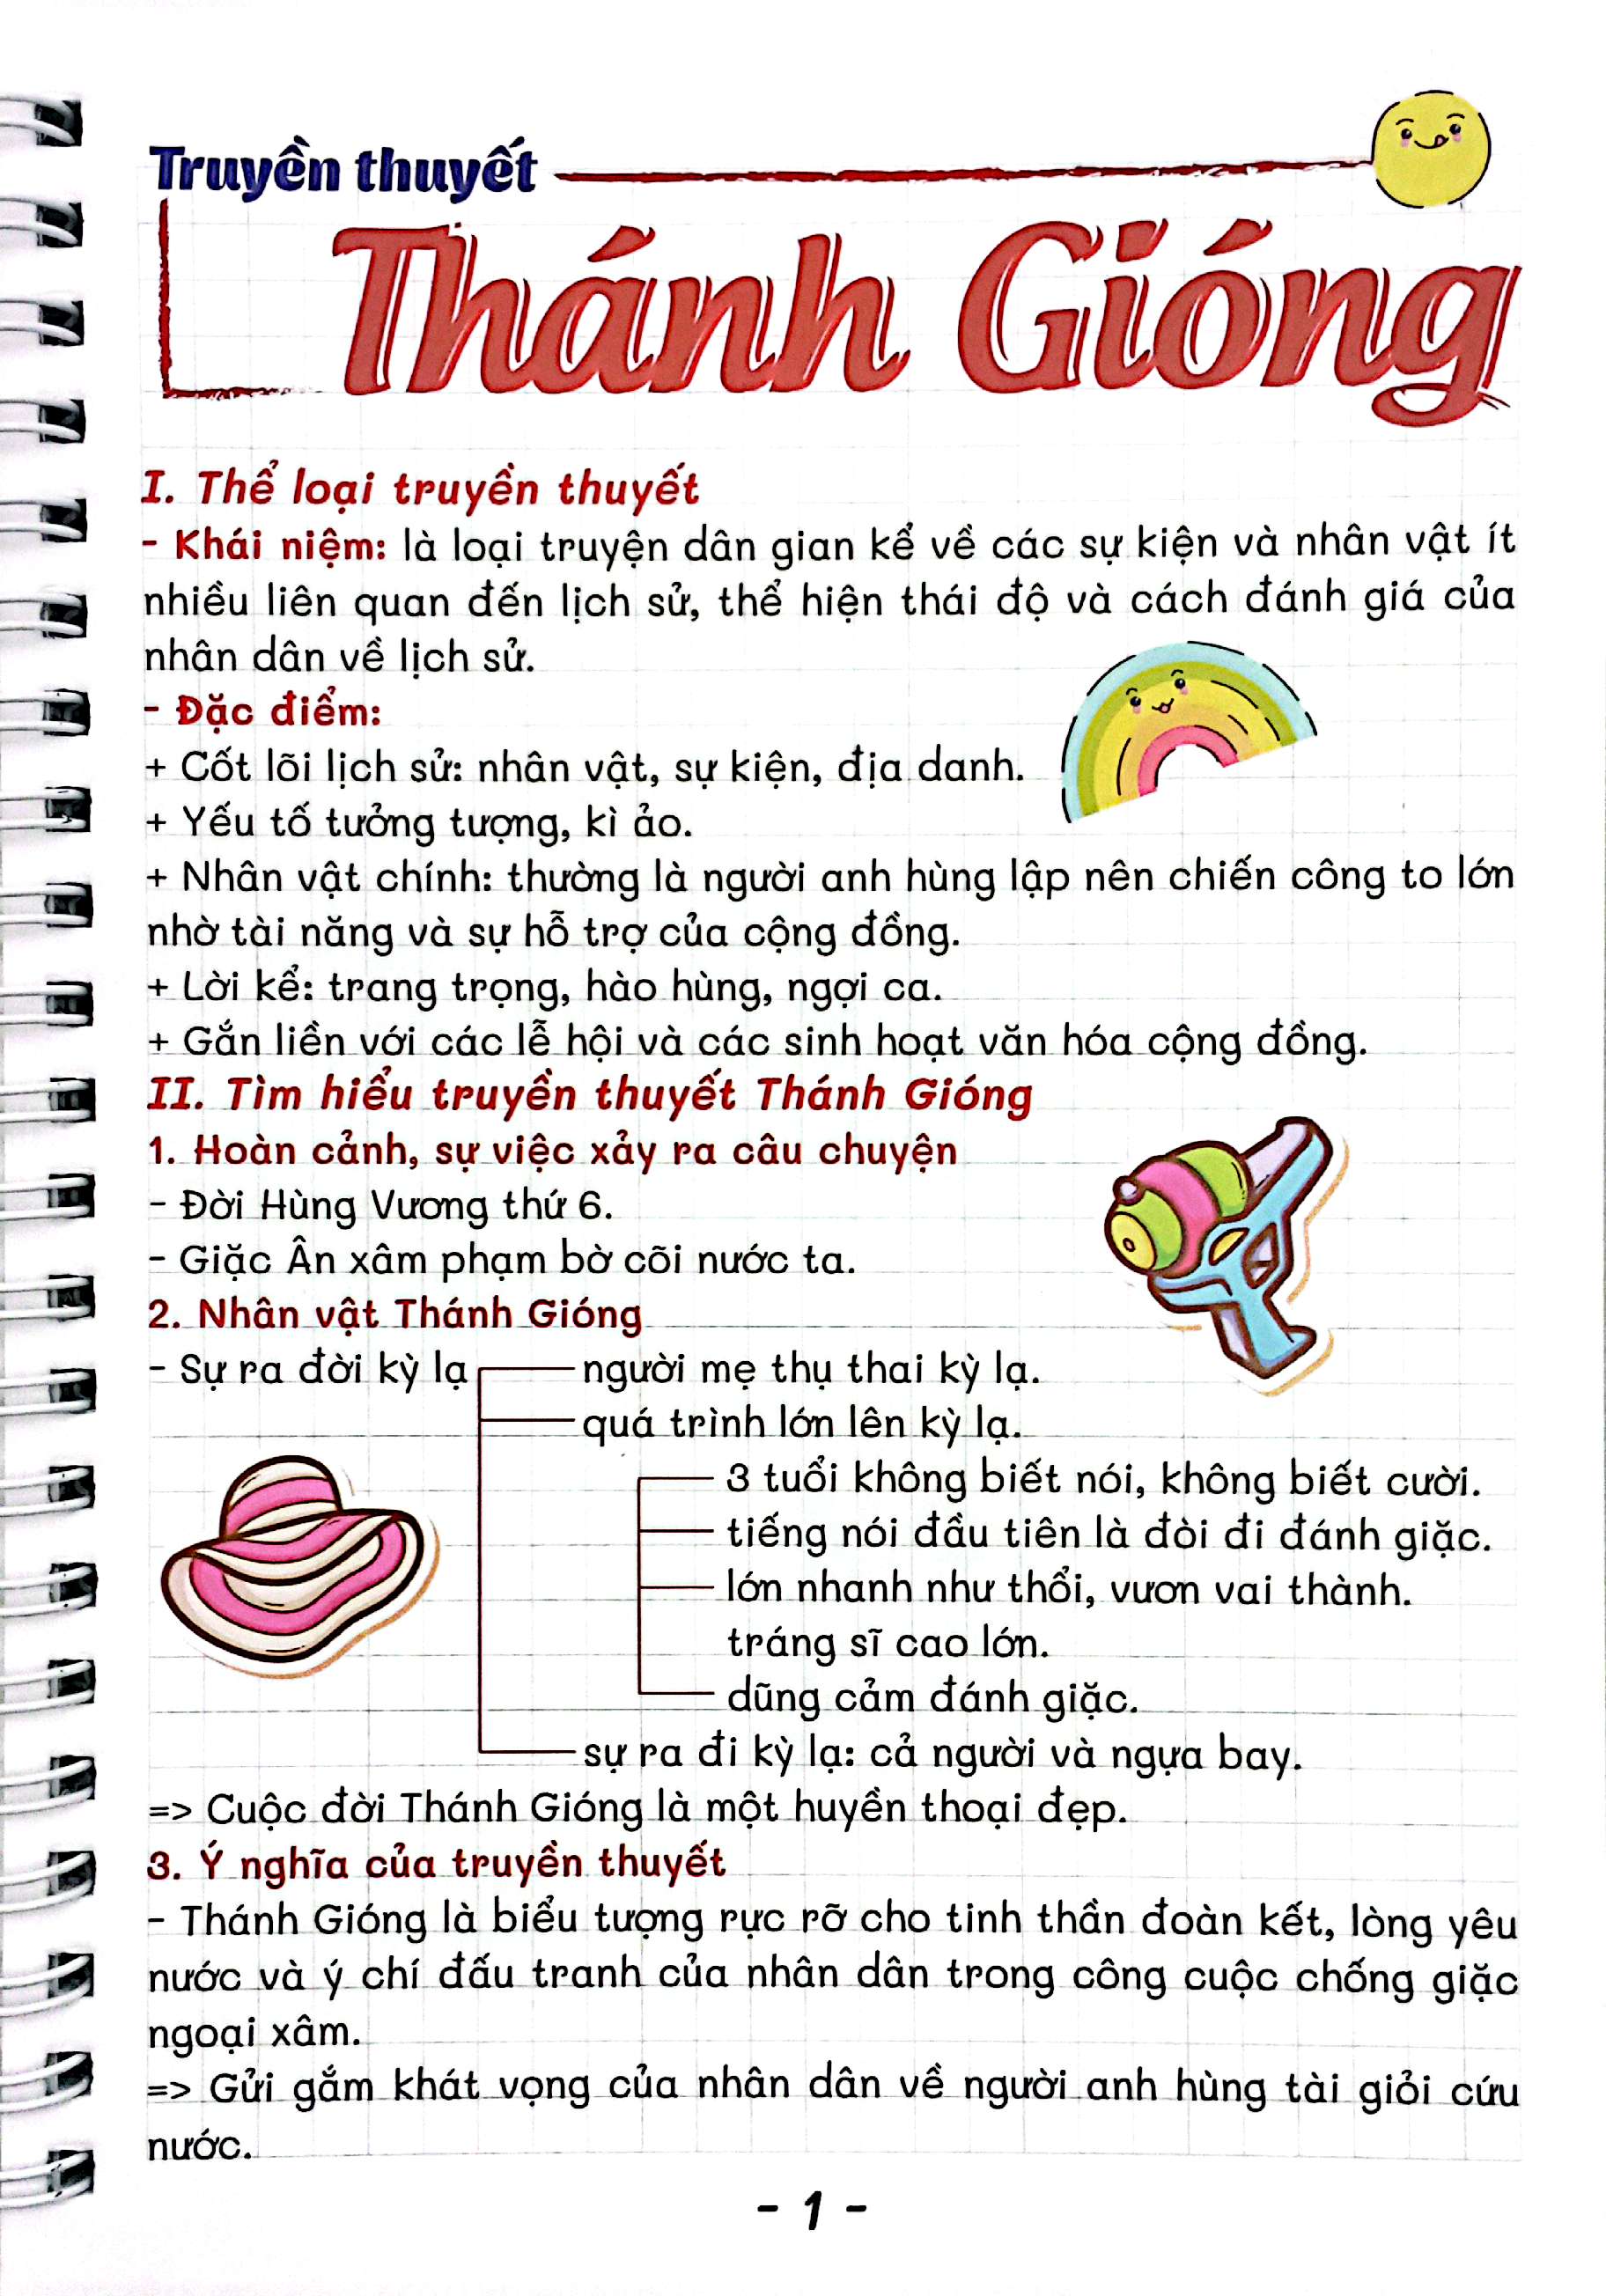 Truyền thuyết
Thánh Gióng
I. Thể loại truyền thuyết
- Khái niệm: là loại truyện dân gian kể về các sự kiện và nhân vật ít
nhiều liên quan đến lịch sử, thể hiện thái độ và cách đánh giá của
nhân dân về lịch sử.
- Đặc điểm:
+ Cốt lõi lịch sử: nhân vật, sự kiện, địa danh.
+ Yếu tố tưởng tượng, kì ảo.
+ Nhân vật chính: thường là người anh hùng lập nên chiến công to lớn
nhờ tài năng và sự hỗ trợ của cộng đồng.
+ Lời kể: trang trọng, hào hùng, ngợi ca.
+ Gắn liền với các lễ hội và các sinh hoạt văn hóa cộng đồng.
II. Tìm hiểu truyền thuyết Thánh Gióng
1. Hoàn cảnh, sự việc xảy ra câu chuyện
- Đời Hùng Vương thứ 6.
- Giặc Ân xâm phạm bờ cõi nước ta.
2. Nhân vật Thánh Gióng
- Sự ra đời kỳ lạ người mẹ thụ thai kỳ lạ.
quá trình lớn lên kỳ lạ.
3 tuổi không biết nói, không biết cười.
tiếng nói đầu tiên là đòi đi đánh giặc.
lớn nhanh như thổi, vươn vai thành.
tráng sĩ cao lớn.
dũng cảm đánh giặc.
sự ra đi kỳ lạ: cả người và ngựa bay.
=> Cuộc đời Thánh Gióng là một huyền thoại đẹp.
3. Ý nghĩa của truyền thuyết
- Thánh Gióng là biểu tượng rực rỡ cho tinh thần đoàn kết, lòng yêu
nước và ý chí đấu tranh của nhân dân trong công cuộc chống giặc
ngoại xâm.
=> Gửi gắm khát vọng của nhân dân về người anh hùng tài giỏi cứu
nước.
- 1 -